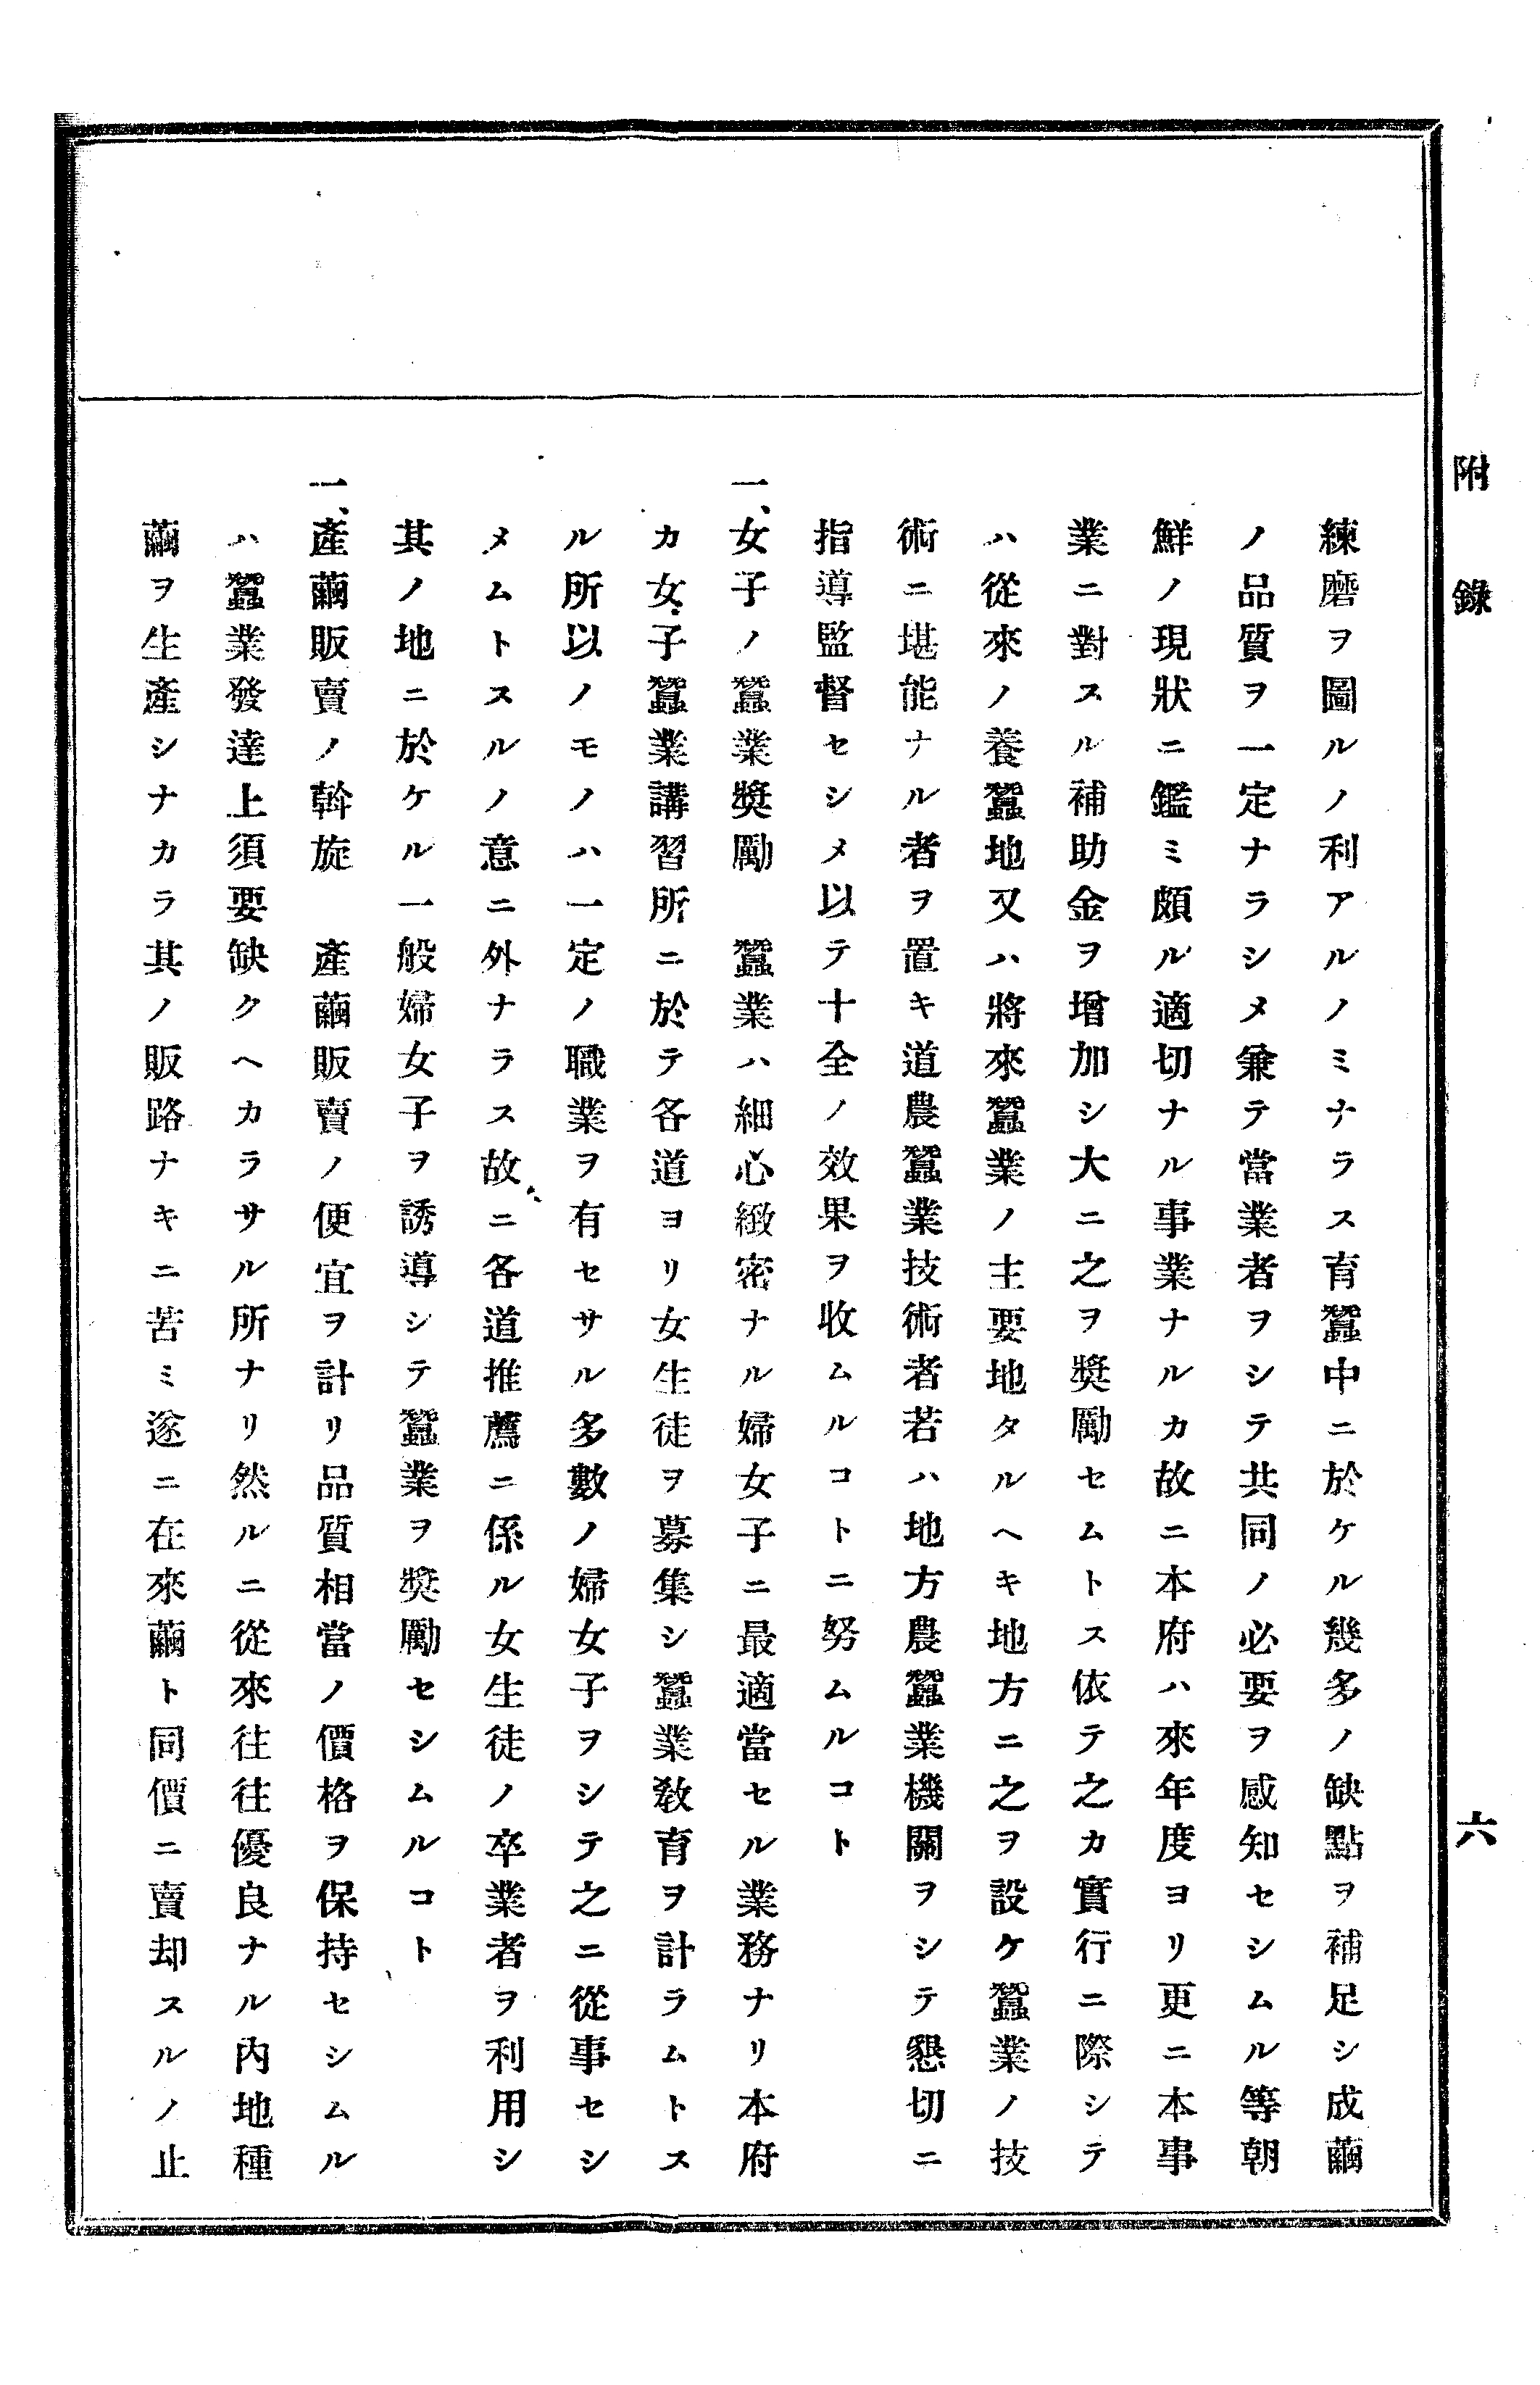 附錄
六
練磨ヲ圖ルノ利アルノミナラス育蠶中ニ於ケル幾多ノ缺點ヲ補足シ成繭
ノ品質ヲ一定ナラシメ兼テ當業者ヲシテ共同ノ必要ヲ感知セシムル等朝
鮮ノ現狀ニ鑑ミ頗ル適切ナル事業ナルカ故ニ本府ハ來年度ヨリ更ニ本事
業ニ對スル補助金ヲ增加シ大ニ之ヲ獎勵セムトス依テ之カ實行ニ際シテ
ハ從來ノ養蠶地又ハ將來蠶業ノ主要地タルヘキ地方ニ之ヲ設ケ蠶業ノ技
術ニ堪能ナル者ヲ置キ道農蠶業技術者若ハ地方農蠶業機關ヲシテ懇切ニ
指導監督セシメ以テ十全ノ效果ヲ收ムルコトニ努ムルコト
一、女子ノ蠶業獎勵　蠶業ハ細心緻密ナル婦女子ニ最適當セル業務ナリ本府
カ女子蠶業講習所ニ於テ各道ヨリ女生徒ヲ募集シ蠶業敎育ヲ計ラムトス
ル所以ノモノハ一定ノ職業ヲ有セサル多數ノ婦女子ヲシテ之ニ從事セシ
メムトスルノ意ニ外ナラス故ニ各道推薦ニ係ル女生徒ノ卒業者ヲ利用シ
其ノ地ニ於ケル一般婦女子ヲ誘導シテ蠶業ヲ獎勵セシムルコト
一、產繭販賣ノ斡旋　產繭販賣ノ便宜ヲ計リ品質相當ノ價格ヲ保持セシムル
ハ蠶業發達上須要缺クヘカラサル所ナリ然ルニ從來往往優良ナル內地種
繭ヲ生產シナカラ其ノ販路ナキニ苦ミ遂ニ在來繭ト同價ニ賣却スルノ止